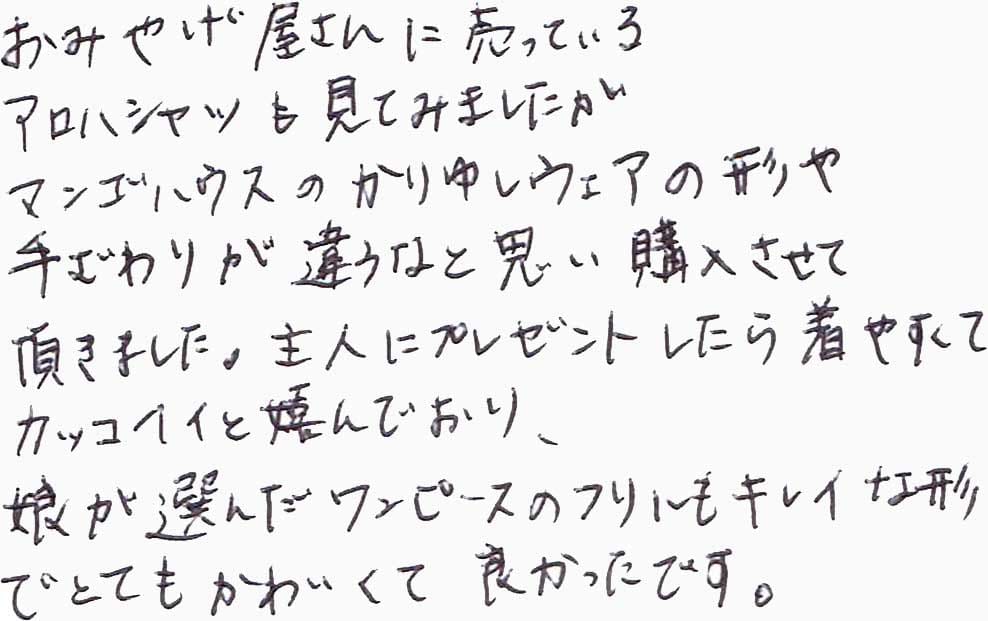 おみやげ屋さんに売っている
アロハシャツも見てみましたが
マンゴハウスのかりゆしウェアの形や
手ざわりが違うなと思い購入させて
頂きました。主人にプレゼントしたら着やすくて
カッコイイと嬉んでおり、
娘が選んだワンピースのフリルもキレイな形
でとてもかわいくて良かったです。